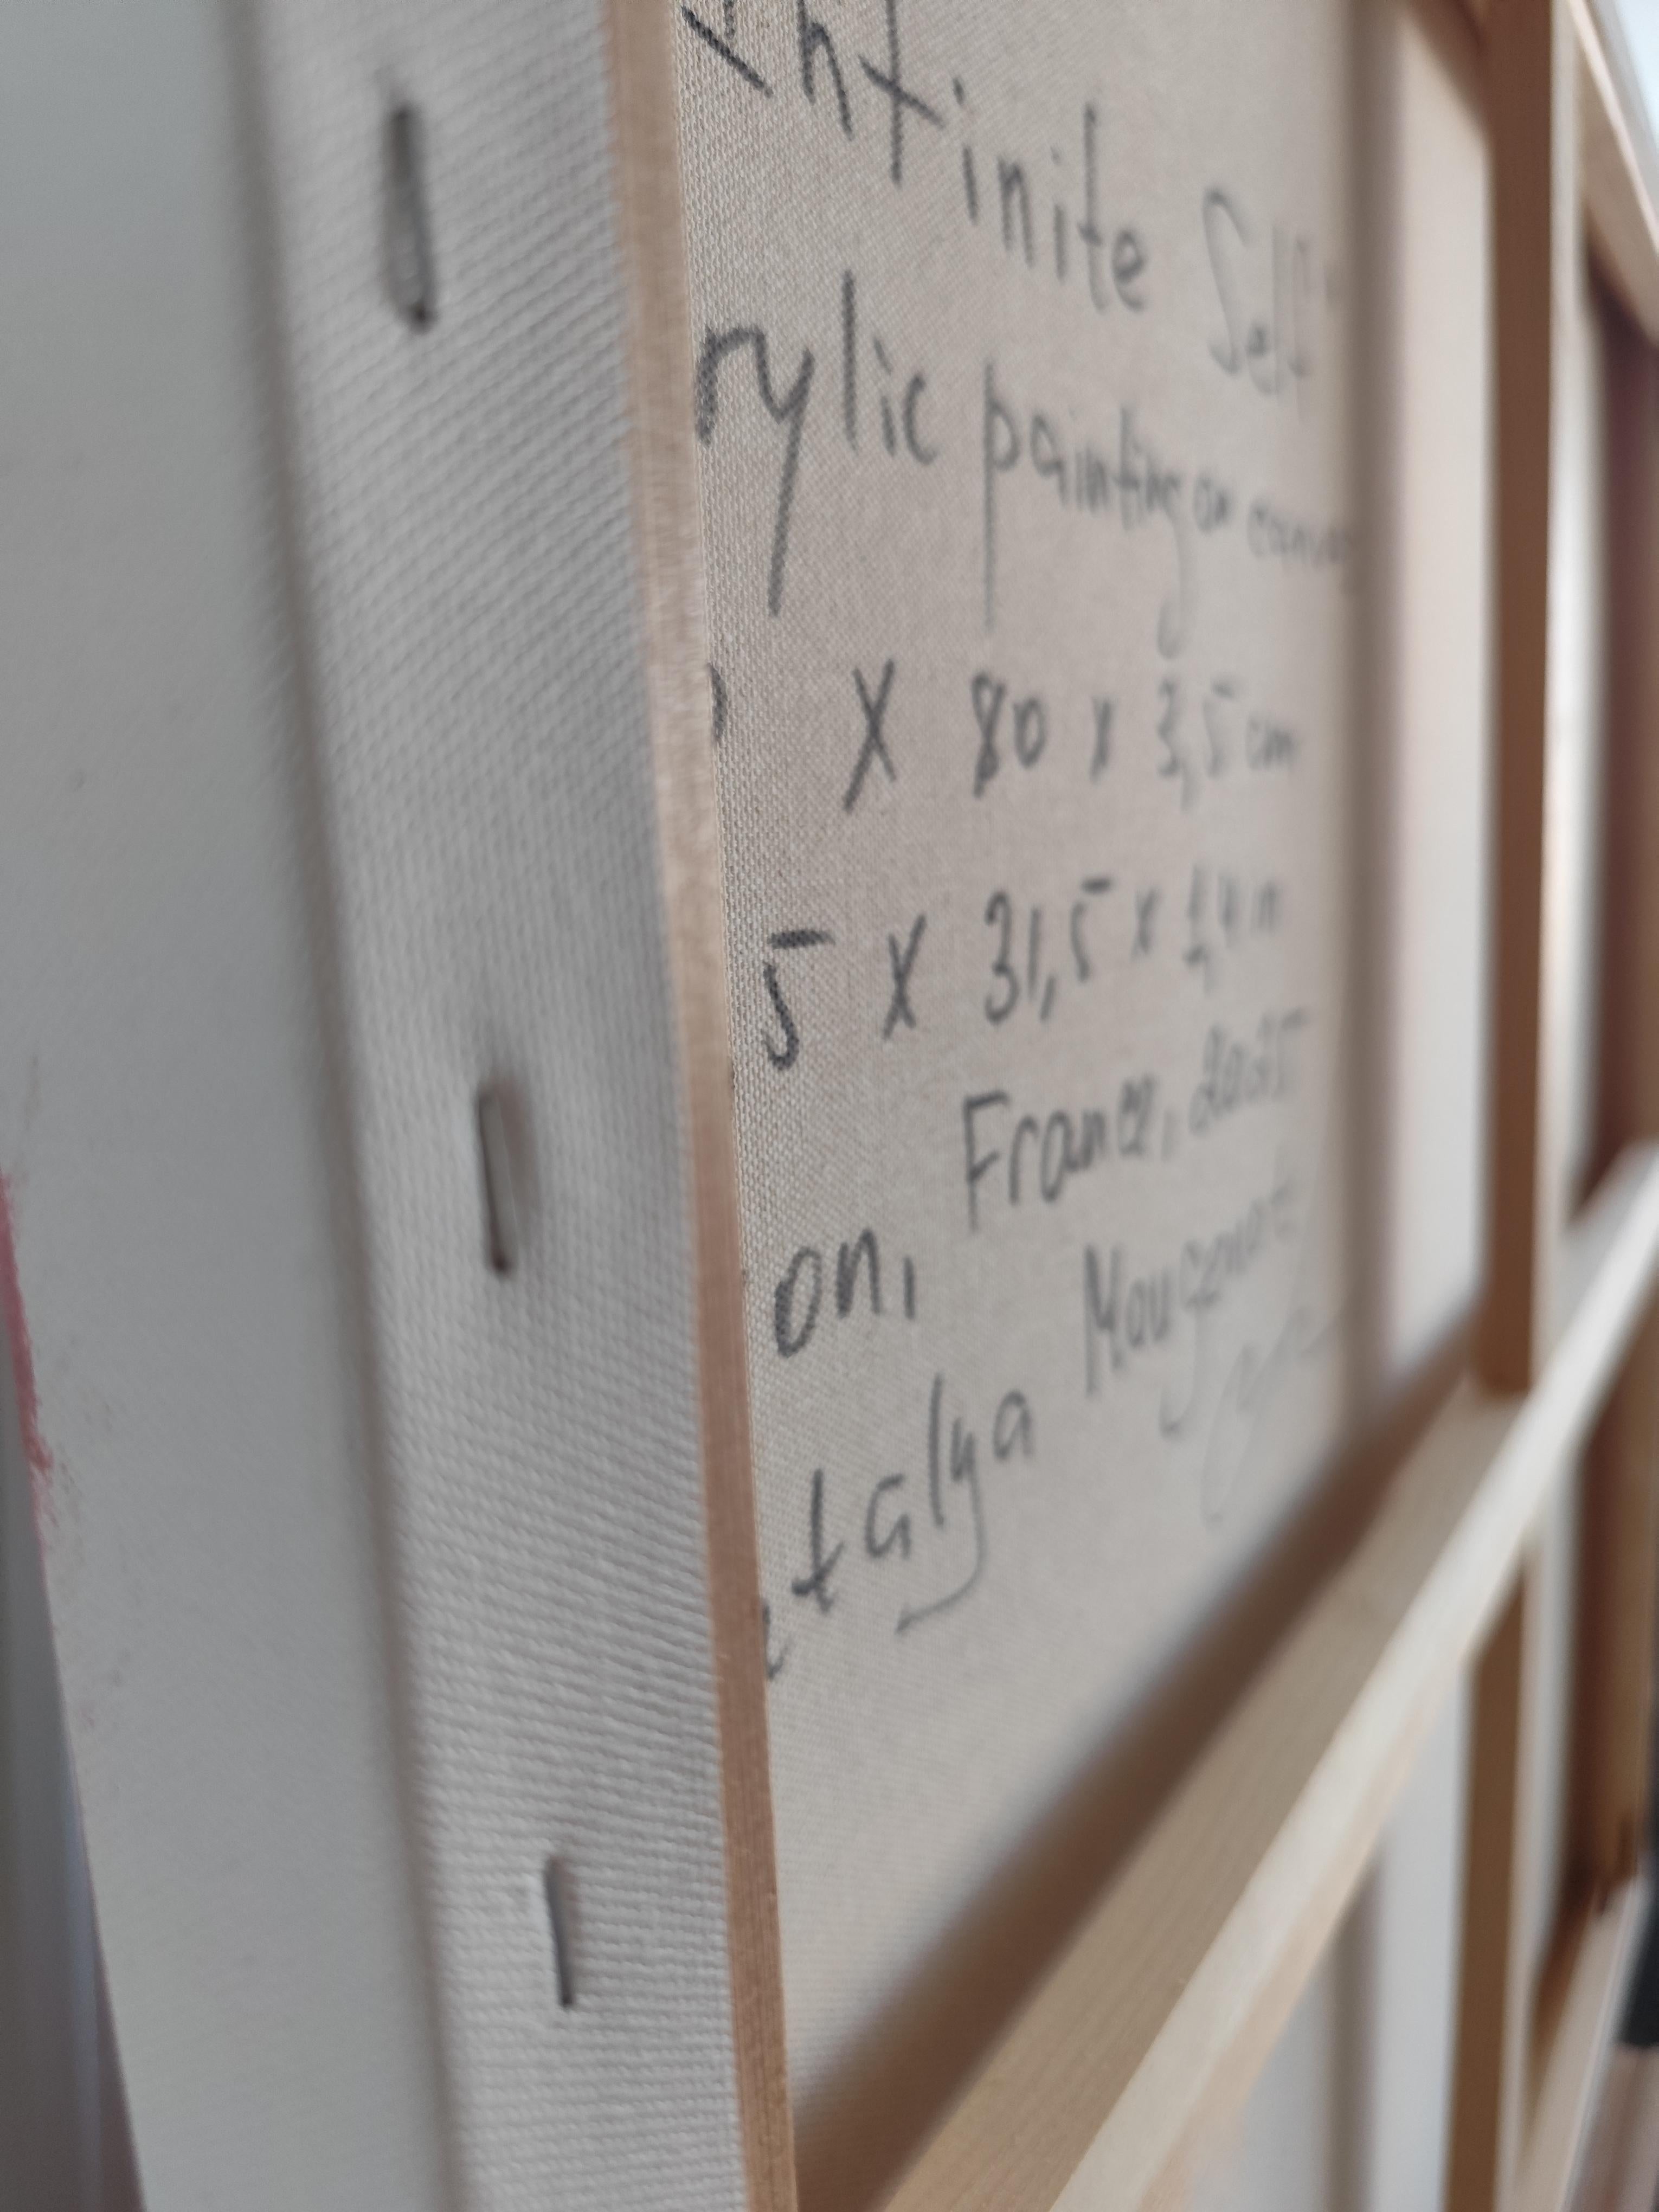 Infinite Self"
rylic painting on canvas
x 80 x 3,5 cm
5 x 31,5 x 1,4 in
on, France, 2025
talya Mougenot